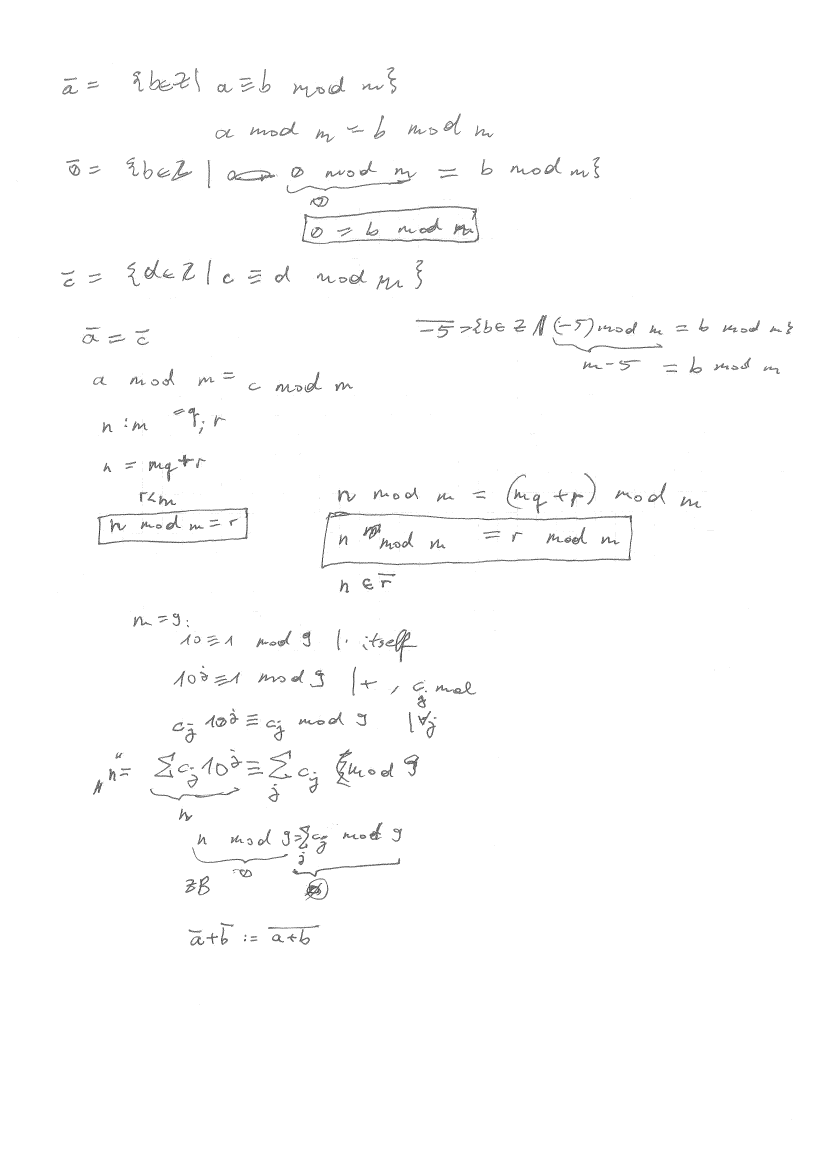 ā = {b∈Z | a ≡ b mod m}
a mod m = b mod m
0̄ = {b∈Z | 0 mod m = b mod m}
0
0 = b mod m
c̄ = {d∈Z | c ≡ d mod m}
ā = c̄
\overline{-5} = {b∈Z | (-5) mod m = b mod m}
m-5 = b mod m
a mod m = c mod m
n : m = q; r
n = mq + r
r < m
n mod m = r
n mod m = (mq + r) mod m
n mod m = r mod m
n ∈ r̄
m = 9:
10 ≡ 1 mod 9 |· itself
10^j ≡ 1 mod 9 |+, c_j mal
c_j 10^j ≡ c_j mod 9 |∀j
"n" = ∑ c_j 10^j ≡ ∑_j c_j mod 9
n
n mod 9 = ∑_j c_j mod 9
zB 0
ā + b̄ := \overline{a+b}